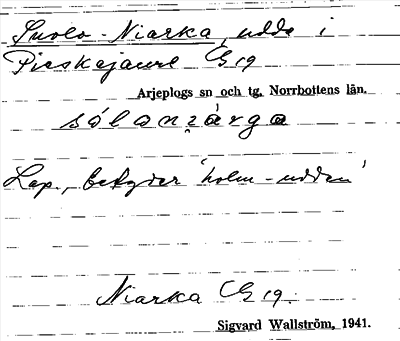 Suolo-Niarka, udde i
Pieskejaure CG 19
Arjeplogs sn och tg, Norrbottens län.
sólonẓárga
Lap., betyder 'holm-udden'
Niarka CG 19.
Sigvard Wallström, 1941.